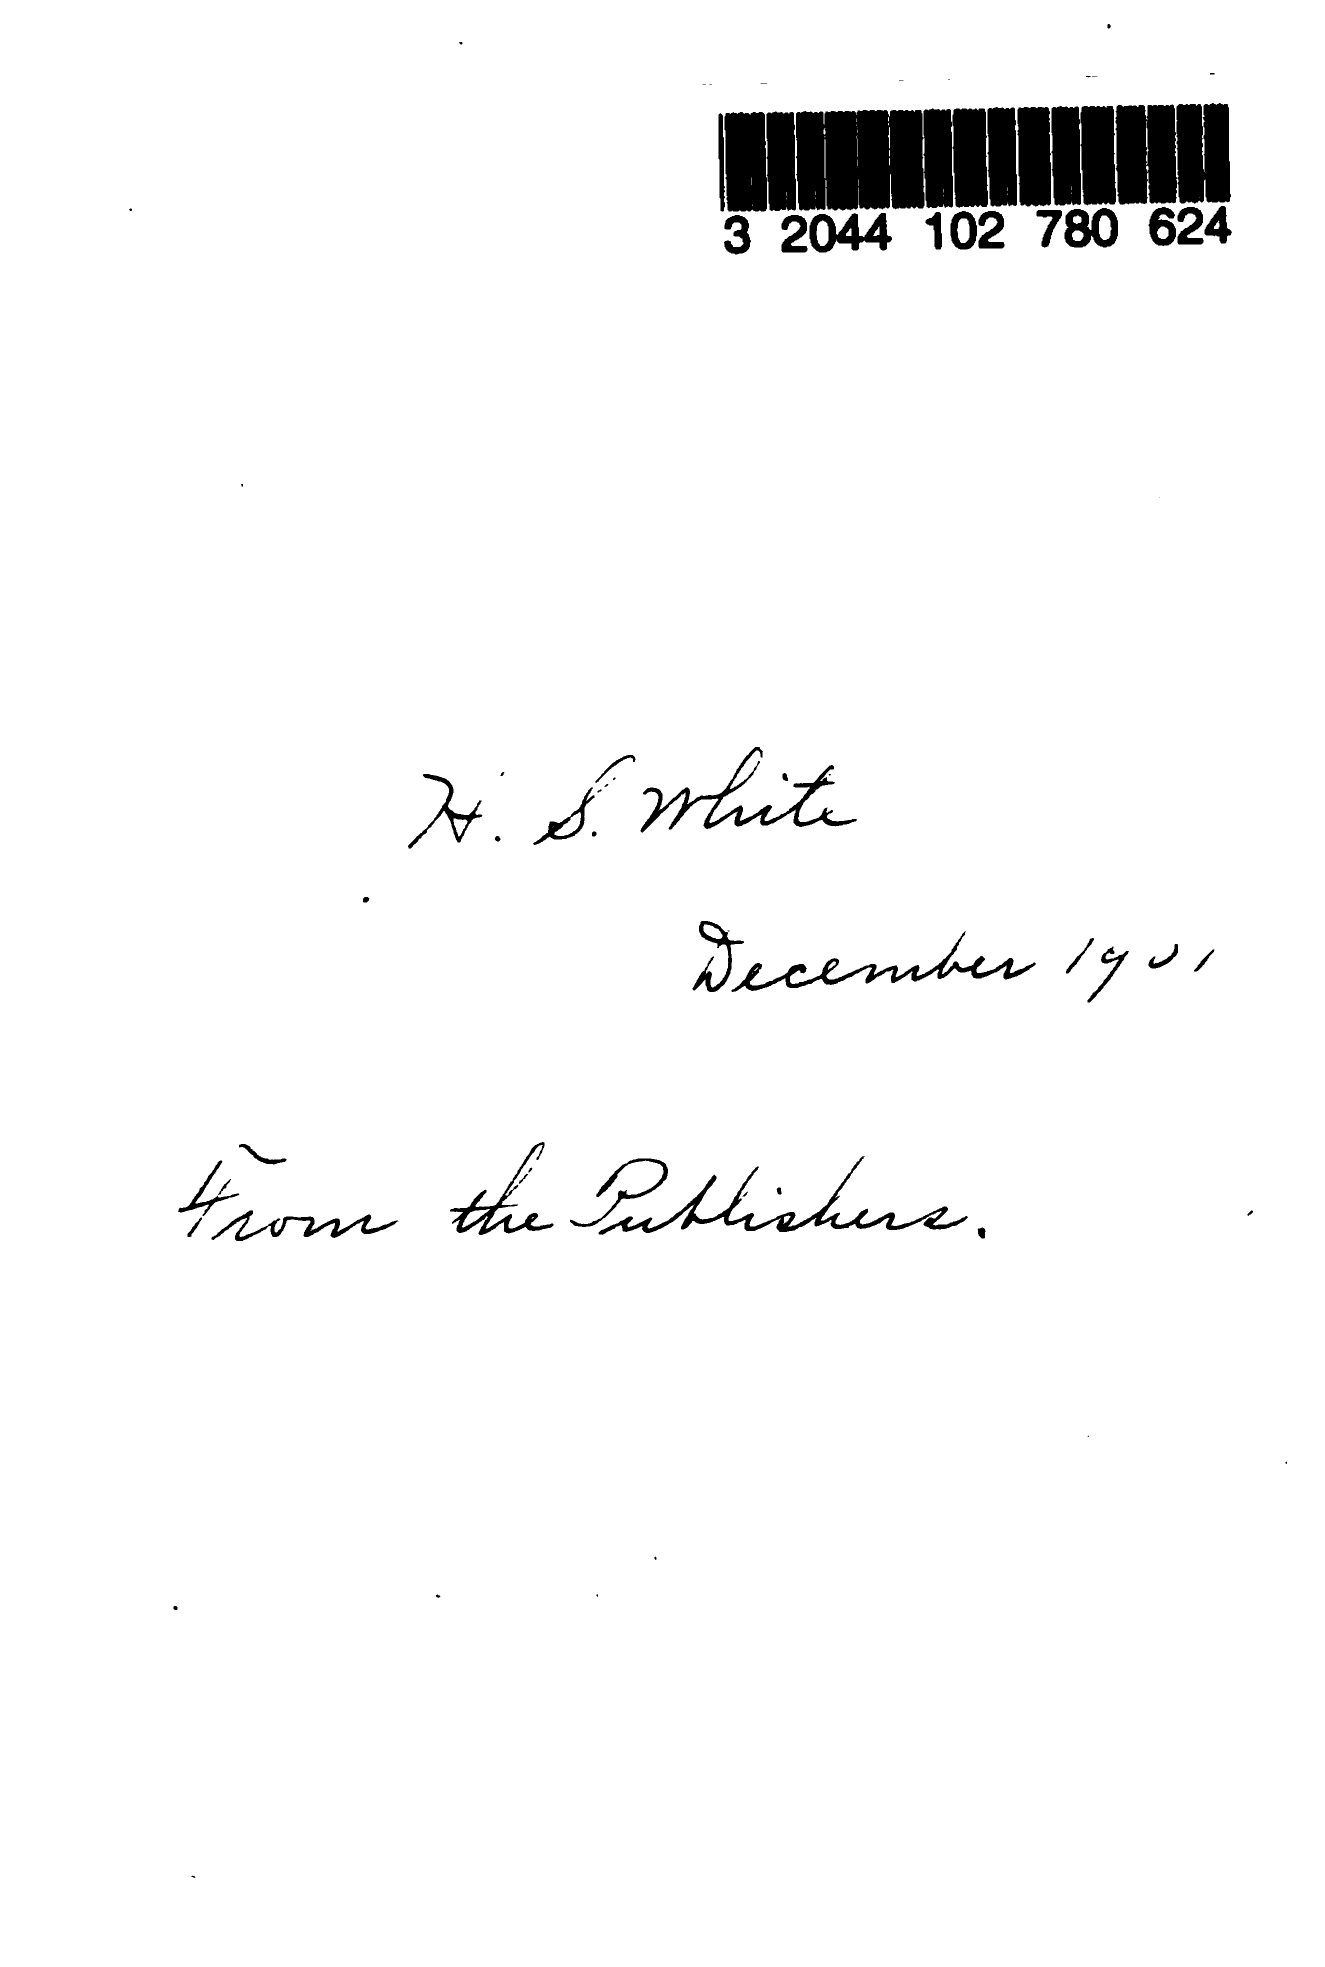 3 2044 102 780 624
H. S. White
December 1901
From the Publishers.